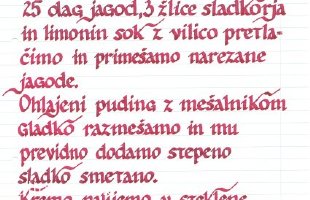 25 dag jagod, 3 žlice sladkorja
in limonin sok z vilico pretla-
čimo in primešamo narezane
jagode.
Ohlajeni puding z mešalnikom
gladko razmešamo in mu
previdno dodamo stepeno
sladko smetano.
Kremo nalijemo v steklene